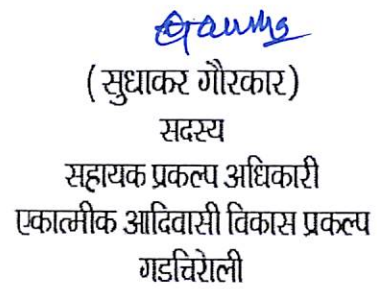 ( सुधाकर गौरकार )
सदस्य
सहायक प्रकल्प अधिकारी
एकात्मीक आदिवासी विकास प्रकल्प
गडचिरोली